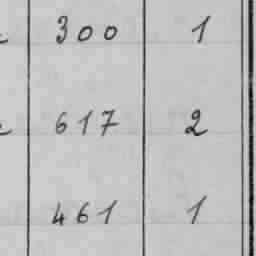 300 1
617 2
461 1